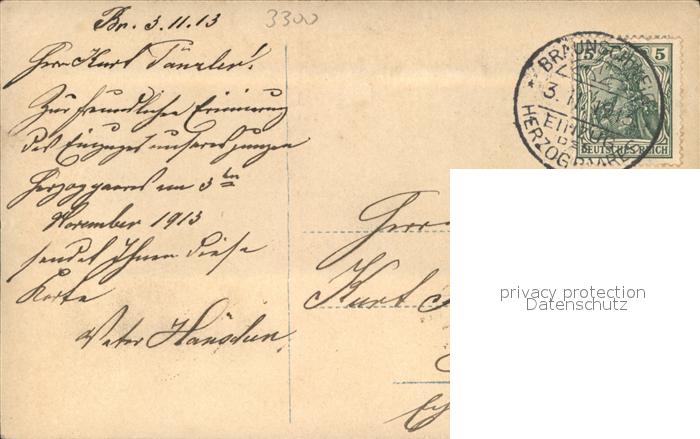 Br. 3.11.13
3300
Herrn Kurt Tänzler!
Zur freundlichen Erinnerung
des Einzuges unseres jungen
Herzogpaares am 3ten
November 1913
sendet Ihnen diese
Karte
Vater
BRAUNSCHWEIG
3. 11. 13
EINZUG
DES
HERZOGPAARES
5 5
DEUTSCHES REICH
Herrn
Kurt
privacy protection
Datenschutz